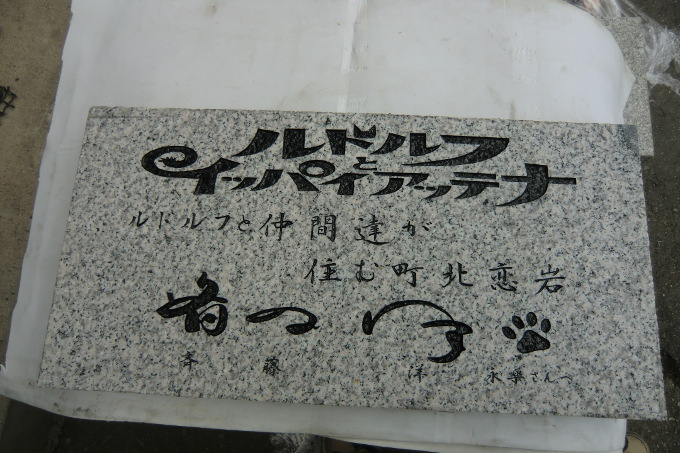 ルドルフと
イッパイアッテナ
ルドルフと仲間達が
住む町北恋岩。
斉藤 洋 永樂さんへ